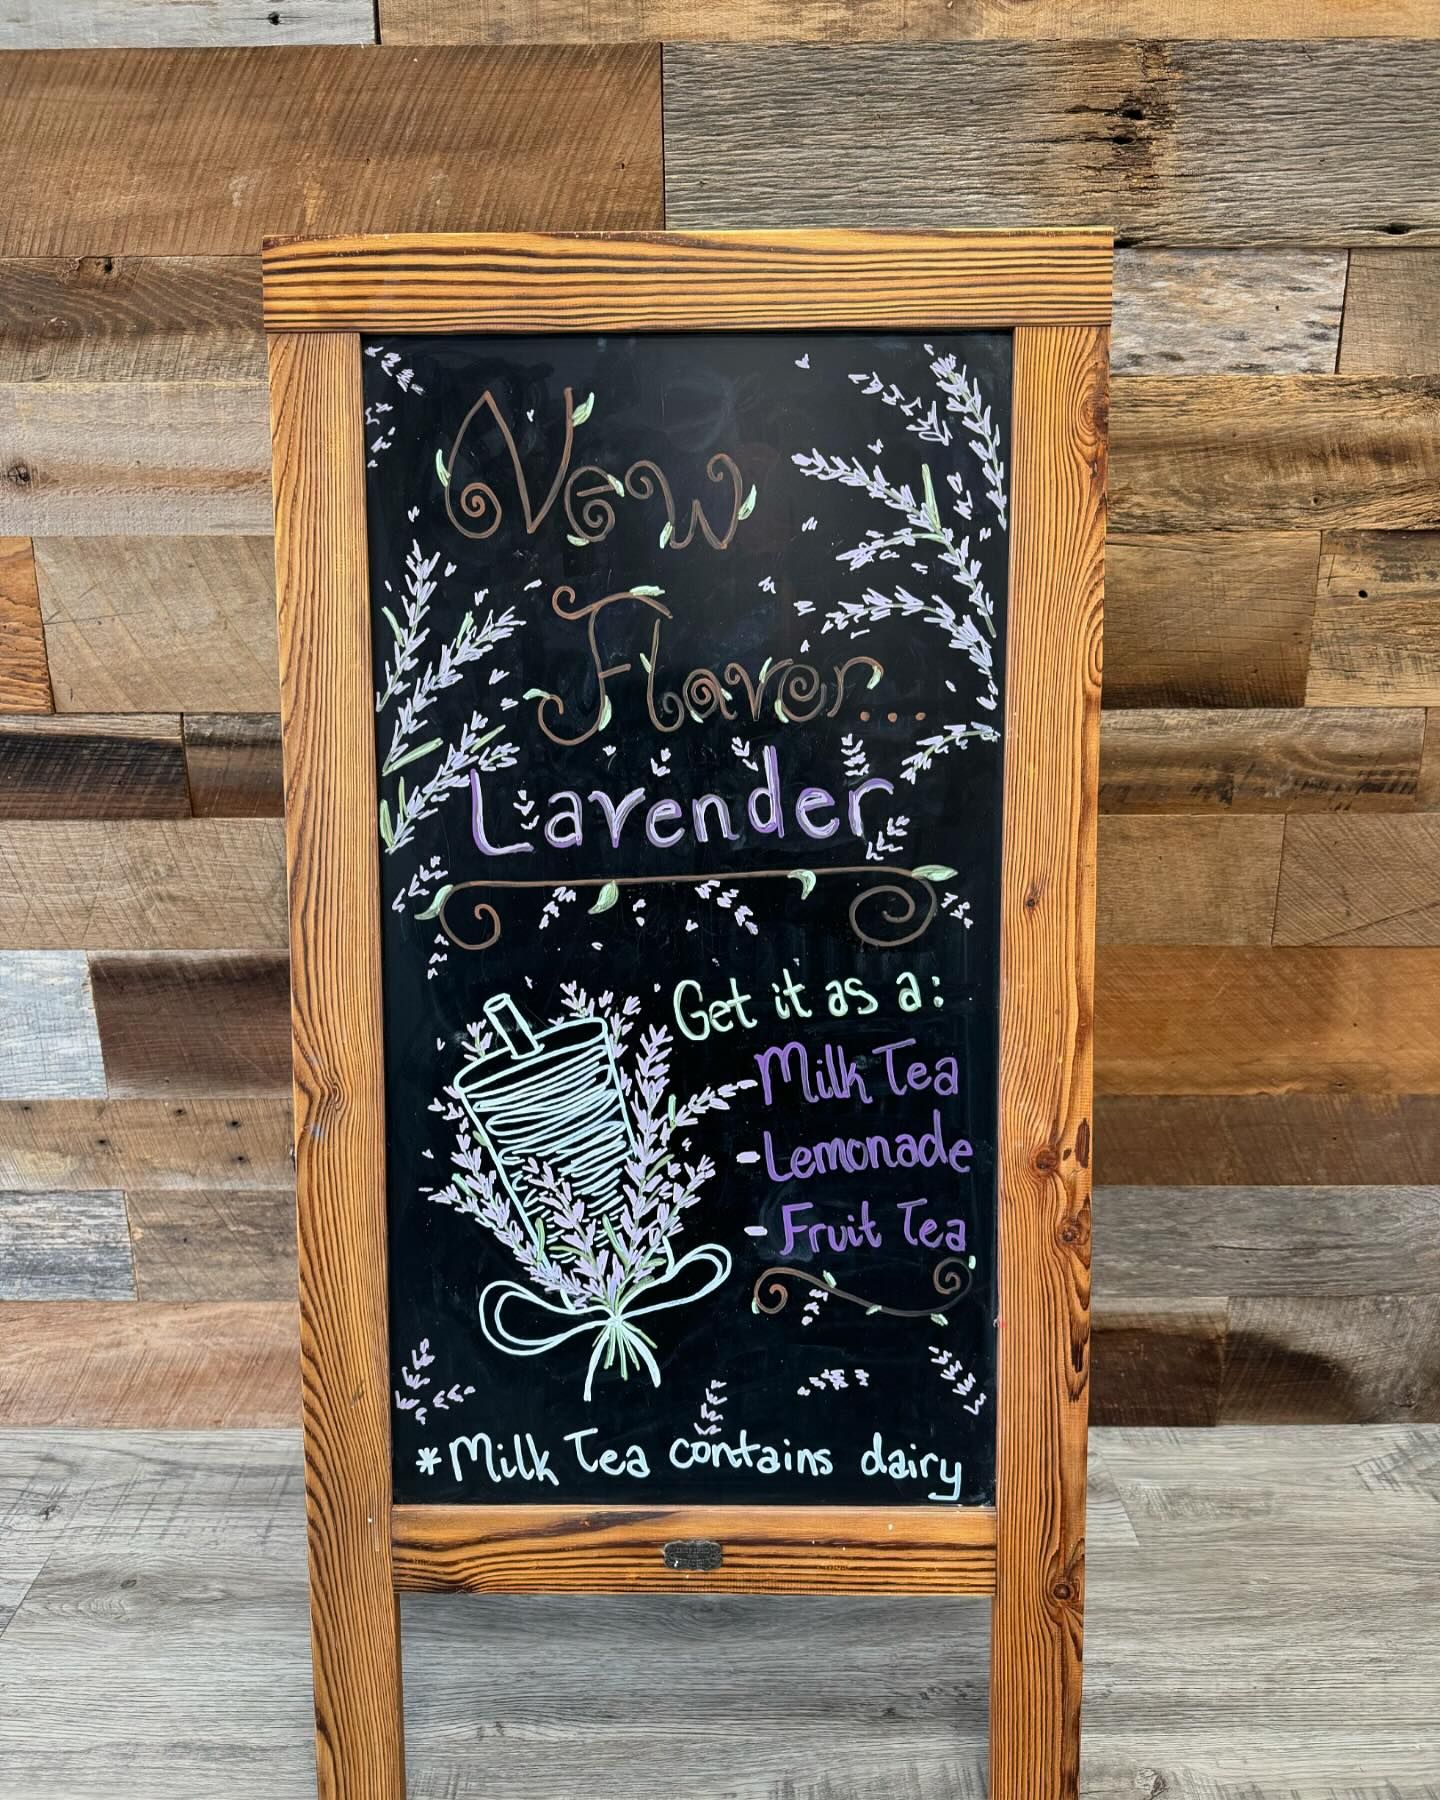 New
Flavor...
Lavender
Get it as a:
- Milk Tea
- Lemonade
- Fruit Tea
*Milk Tea contains dairy